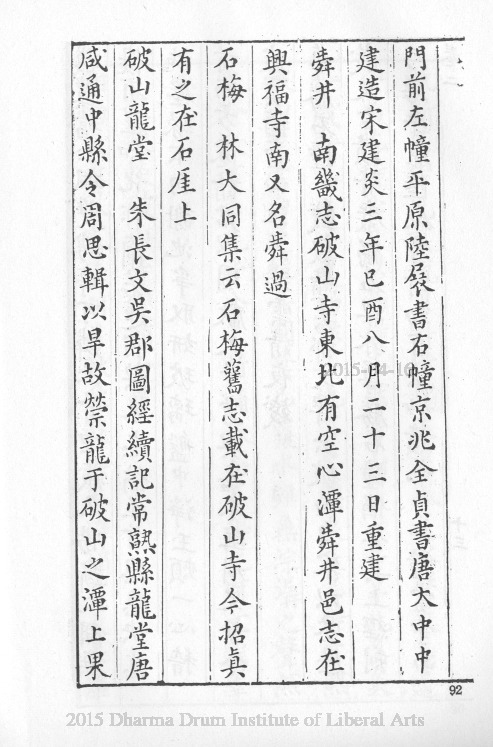 門前左幢平原陸展書右幢京兆全貞書唐大中中
建造宋建炎三年巳酉八月二十三日重建
舜井　南畿志破山寺東北有空心潭舜井邑志在
興福寺南又名舜過
石梅　林大同集云石梅舊志載在破山寺今招真
有之在石厓上
破山龍堂　朱長文吳郡圖經續記常熟縣龍堂唐
咸通中縣令周思輯以旱故禜龍于破山之潭上果
92
2015 Dharma Drum Institute of Liberal Arts